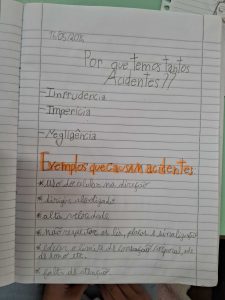 Por que temos tantos
Acidentes??
-Imprudencia
-Imperícia
-Negligência
Exemplos que causam acidentes:
*uso do celular na direção
*dirigir
*alta velocidade
*não respeitar as leis, placas e sinalização
o limite de
de sono etc.
*falta de atenção